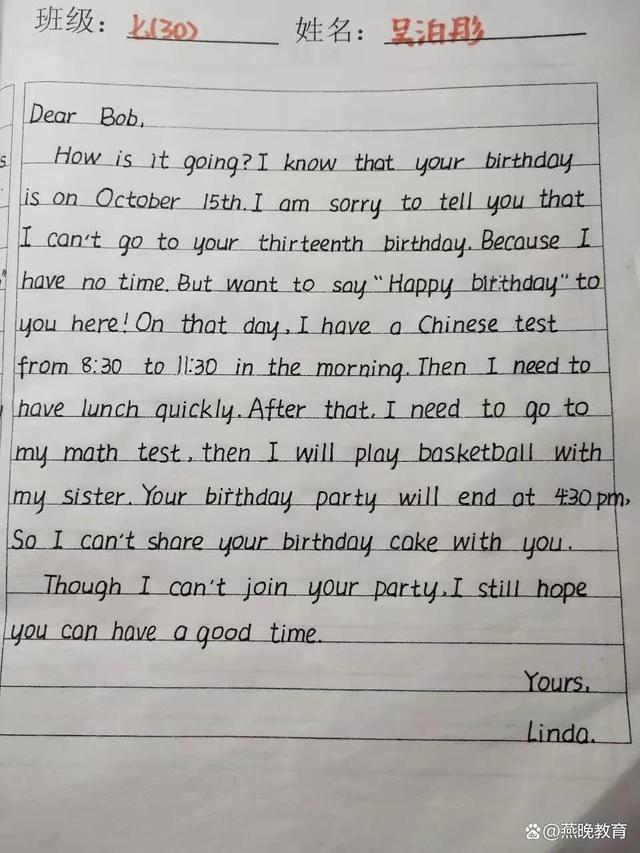 班级: 七(30) 姓名: 吴泊彤
Dear Bob,
How is it going? I know that your birthday
is on October 15th. I am sorry to tell you that
I can't go to your thirteenth birthday. Because I
have no time. But want to say "Happy birthday" to
you here! On that day, I have a Chinese test
from 8:30 to 11:30 in the morning. Then I need to
have lunch quickly. After that, I need to go to
my math test, then I will play basketball with
my sister. Your birthday party will end at 4:30 pm,
So I can't share your birthday cake with you.
Though I can't join your party, I still hope
you can have a good time.
Yours,
Linda.
@燕晚教育